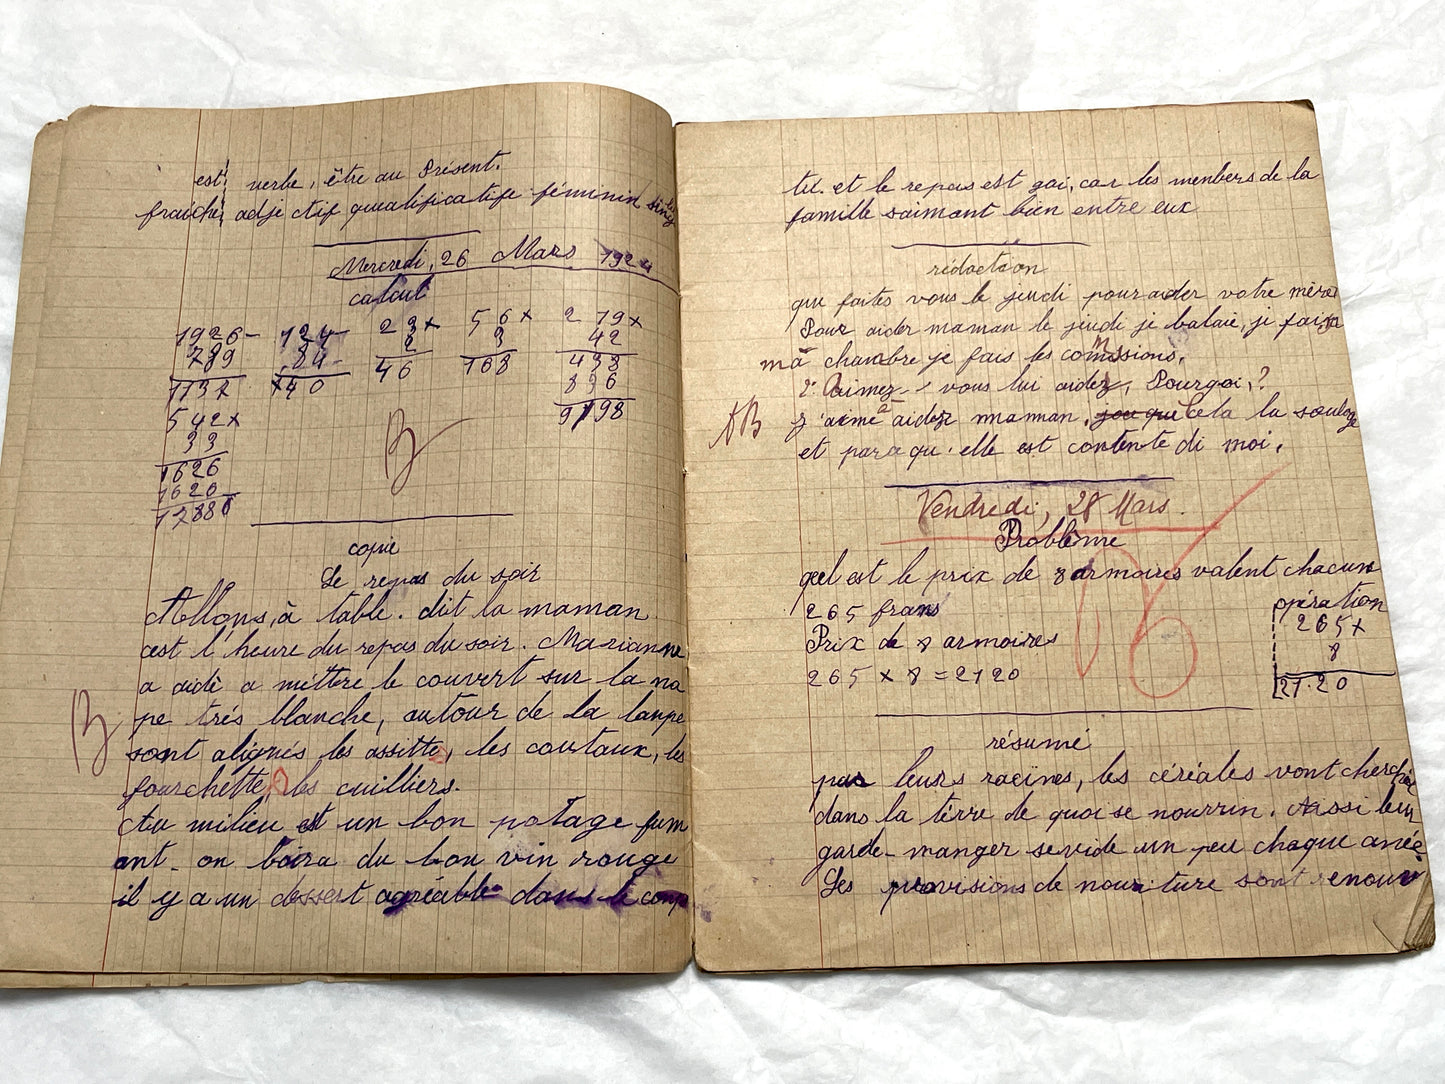 est verbe, être au Présent.
fraiche adjectif qualificatife féminin sing
Mercredi, 26 Mars 1924
calcul
1926- 124- 23x 56x 219x
789 84- 2 3 42
1137 40 46 168 438
542x 876
33 9198
1626
1620
17886
B
copie
Le repas du soir
Allons, à table. dit la maman
cest l'heure du repas du soir. Marianne
a aidé a méttre le couvert sur la na
B
pe trés blanche, autour de la lampe
sont alignés les assitte, les coutaux, les
fourchette, les cuilliers.
Au milieu est un bon potage fum
ant. on boira du bon vin rouge
il y a un dessert agréable dans le comp
tit. et le repas est gai, car les menbers de la
famille saimant bien entre eux
rédaction
que faites vous le jeudi pour aider votre mère
Pour aider maman le jeudi je balaie, je fais
ma chambre je fais les commissions.
2: Aimez-vous lui aider, Pourqoi,?
AB
J'aime aider maman, cela la soulage
et parcequ'elle est contente di moi.
Vendredi, 28 Mars.
Problème
quel est le prix de 8 armoires valent chacune
265 frans
opération
Prix de 8 armoires
265x
8
265 x 8 = 2120
21.20
résumé
par leurs racines, les céréales vont cherché
dans la térre de quoi se nourrin. Aussi leur
garde-manger se vide un peu chaque anée.
Les provisions de nouriture sont renouv